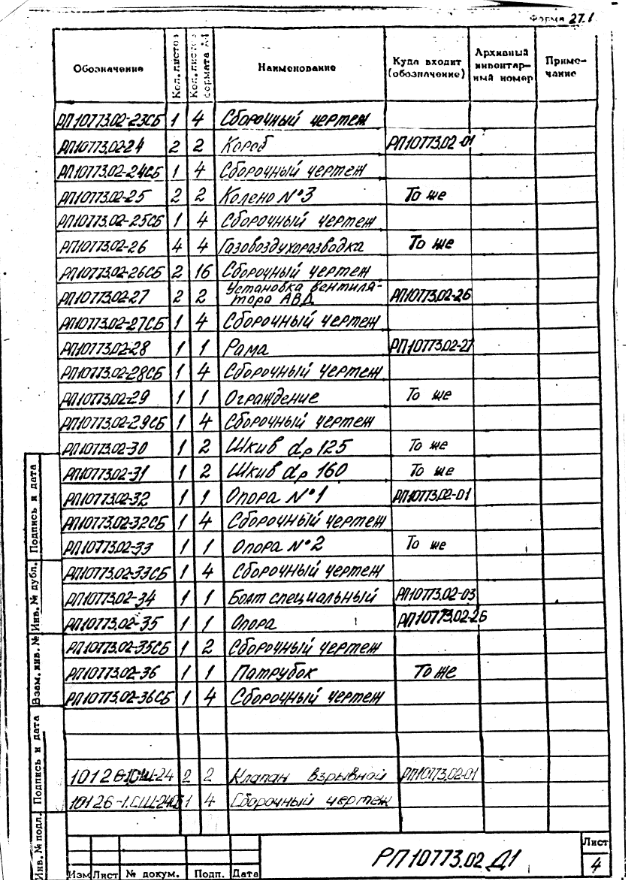 Форма 27.1
Обозначение Кол. листов Кол. листов формата А4 Наименование Куда входит (обозначение) Архивный инвентарный номер Примечание
РП10773.02-23СБ 1 4 Сборочный чертеж
РП10773.02-24 2 2 Короб РП10773.02-01
РП10773.02-24СБ 1 4 Сборочный чертеж
РП10773.02-25 2 2 Колено №3 То же
РП10773.02-25СБ 1 4 Сборочный чертеж
РП10773.02-26 4 4 Газовоздухоразводка То же
РП10773.02-26СБ 2 16 Сборочный чертеж
РП10773.02-27 2 2 Установка вентиля-
тора АВД РП10773.02-26
РП10773.02-27СБ 1 4 Сборочный чертеж
РП10773.02-28 1 1 Рама РП10773.02-27
РП10773.02-28СБ 1 4 Сборочный чертеж
РП10773.02-29 1 1 Ограждение То же
РП10773.02-29СБ 1 4 Сборочный чертеж
РП10773.02-30 1 2 Шкив dр 125 То же
РП10773.02-31 1 2 Шкив dр 160 То же
РП10773.02-32 1 1 Опора №1 РП10773.02-01
РП10773.02-32СБ 1 4 Сборочный чертеж
РП10773.02-33 1 1 Опора №2 То же
РП10773.02-33СБ 1 4 Сборочный чертеж
РП10773.02-34 1 1 Болт специальный РП10773.02-03
РП10773.02-35 1 1 Опора РП10773.02-26
РП10773.02-35СБ 1 2 Сборочный чертеж
РП10773.02-36 1 1 Патрубок То же
РП10773.02-36СБ 1 4 Сборочный чертеж
10126-1СШ-24 2 2 Клапан взрывной РП10773.02-01
10126-1.СШ-24СБ 1 4 Сборочный чертеж
Инв. № подл. Подпись и дата Взам. инв. № Инв. № дубл. Подпись и дата
Изм Лист № докум. Подп. Дата
РП10773.02 Д1
Лист
4